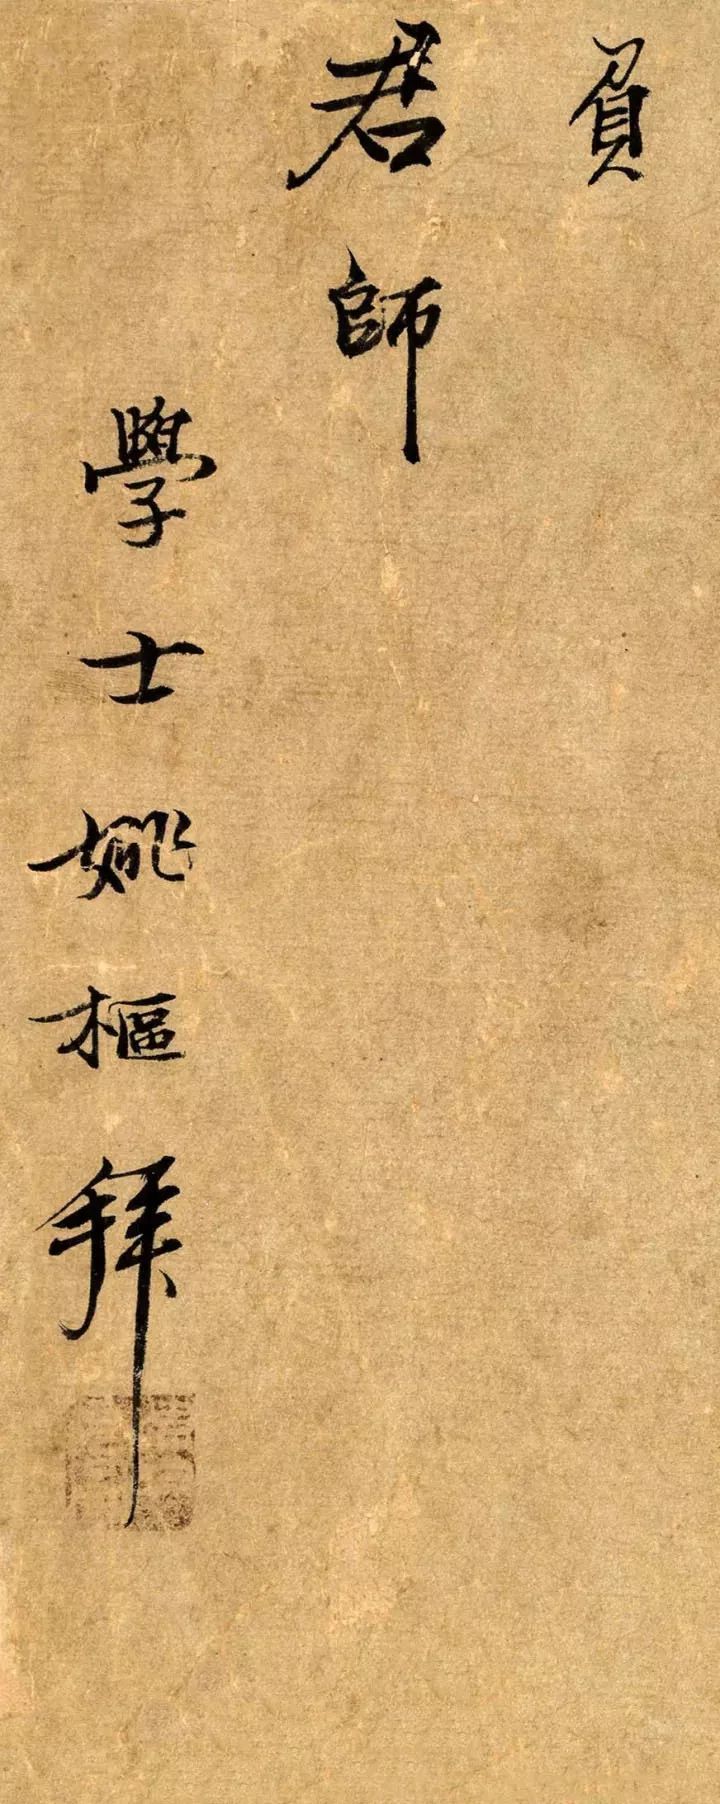 負
君師
學士姚樞拜